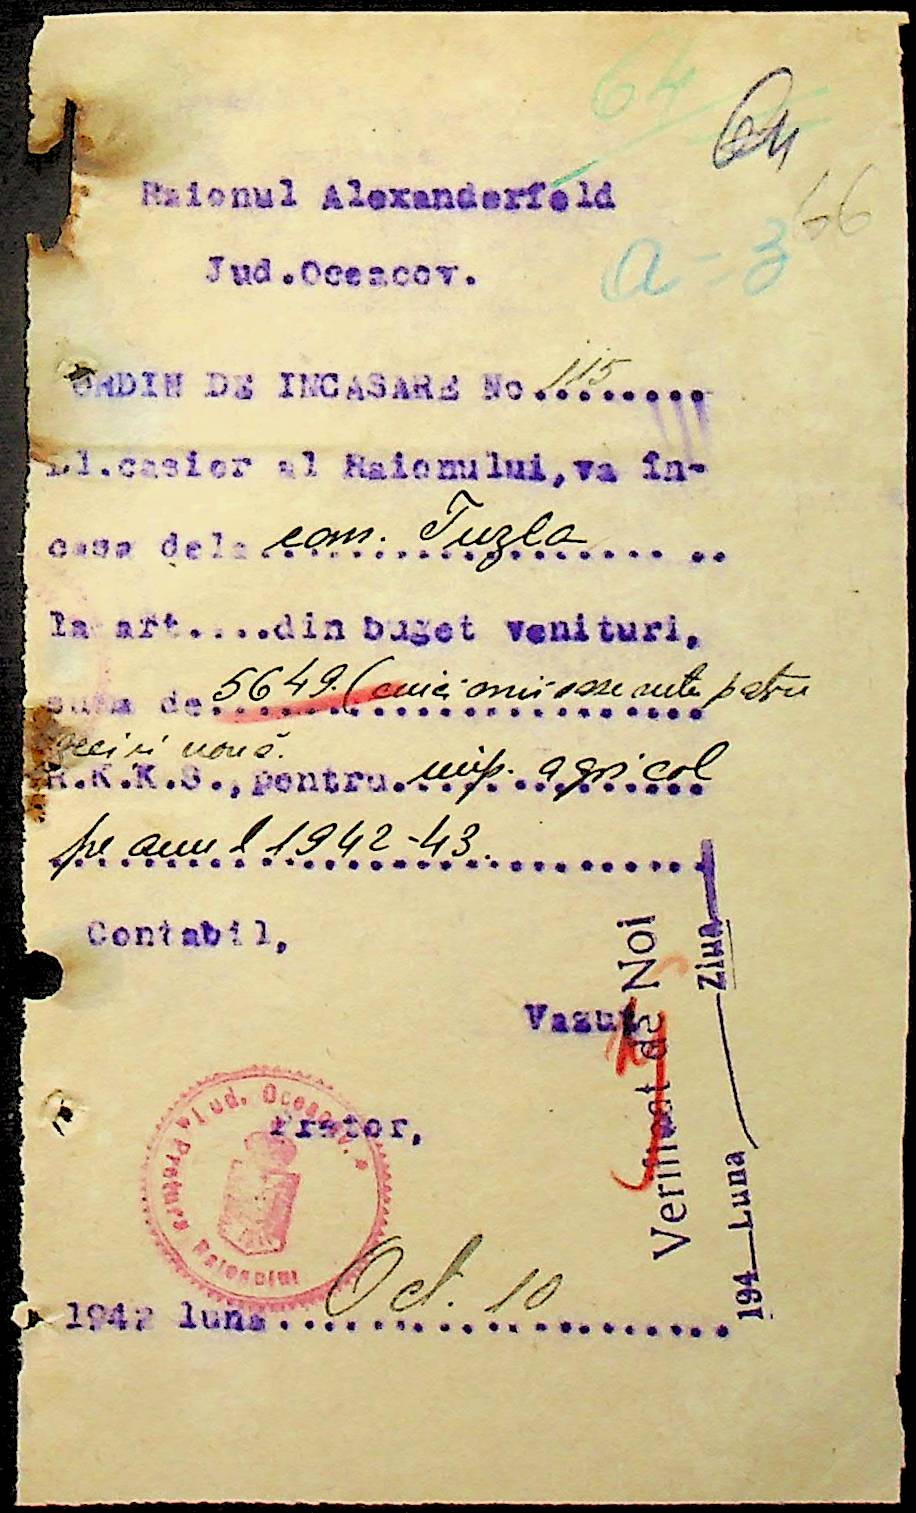 64
64
66
Raionul Alexanderfeld
a-3
Jud.Oceacov.
ORDIN DE INCASARE No.115.......
Dl.casier al Raionului,va în-
casa dela com. Tuzla
la art.....din buget venituri,
suma de 5649.(cinci mii sase sute patru
zeci si nouă.
R.K.K.S.,pentru imp. agricol
pe anul 1942-43.
Contabil,
Vazut
Pretor,
Jud. Oceacov. * Pretura Raionului
Verificat de Noi
194 Luna Ziua
1942 luna Oct. 10